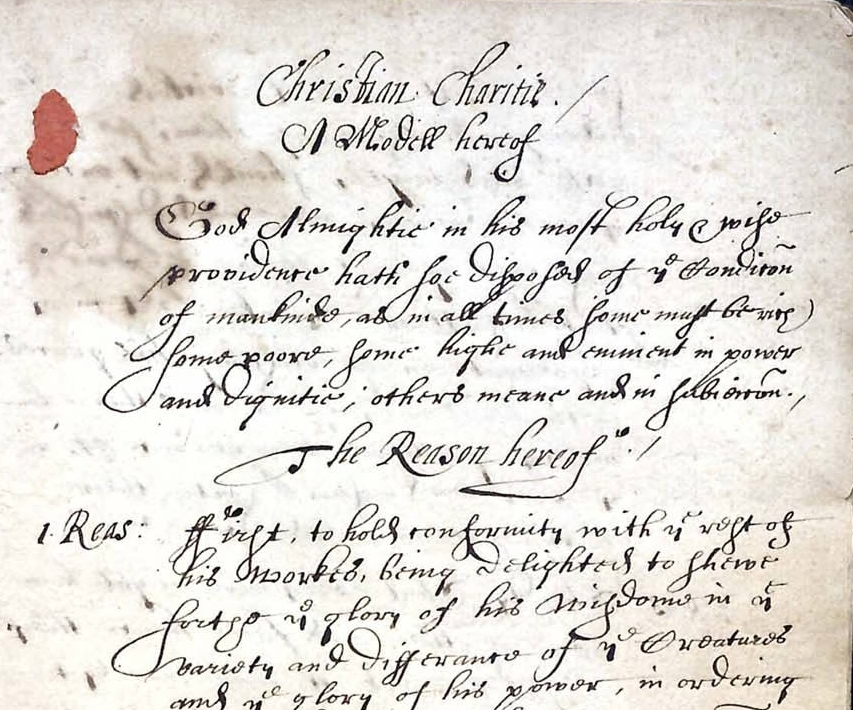 Christian Charitie. /
A Modell hereof
God Almightie in his most holy & wise
providence hath soe disposed of yᵉ Condicõn
of mankinde, as in all times some must be rich
some poore, some highe and eminent in power
and dignitie; others meane and in subieccõn. /
The Reason hereof. /
1. Reas: ffirst, to hold conformity with yᵉ rest of
his workes, being delighted to shewe
forthe yᵉ glory of his wisdome in yᵉ
variety and differance of yᵉ Creatures
and yᵉ glory of his power, in ordering